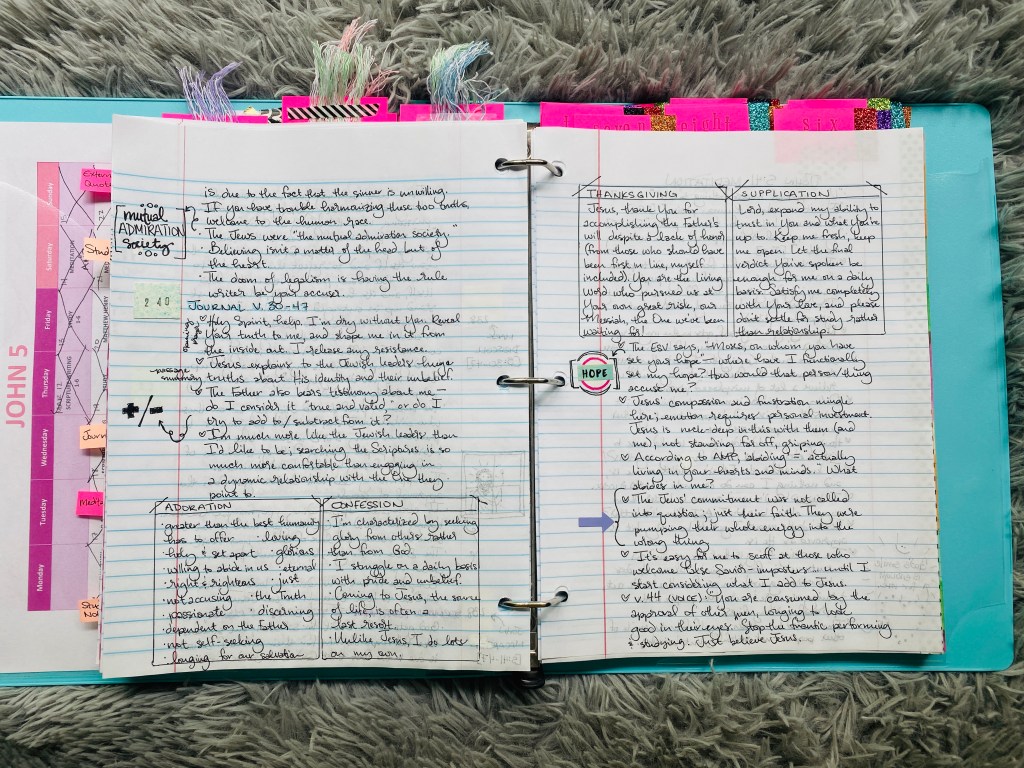 JOHN 5
Sunday
Saturday
Friday
Thursday
Wednesday
Tuesday
Monday
mutual
ADMIRATION
society
240
passage
summary
+/-
is due to the fact that the sinner is unwilling.
If you have trouble harmonizing these two truths,
welcome to the human race.
· The Jews were "the mutual admiration society."
· Believing isn't a matter of the head but of
the heart.
· The doom of legalism is having the rule
writer be your accuser.
JOURNAL V. 30-47
♡ Holy Spirit, help. I'm dry without You. Reveal
Your truth to me, and shape me in it from
the inside out. I release any resistance.
♡ Jesus explains to the Jewish leaders huge
truths about His identity and their unbelief.
♡ The Father also bears testimony about me
do I consider it "true and valid," or do I
try to add to/subtract from it?
♡ I'm much more like the Jewish leaders than
I'd like to be; searching the Scriptures is so
much more comfortable than engaging in
a dynamic relationship with the One they
point to.
ADORATION
· greater than the best humanity
has to offer · loving
· holy & set apart · glorious
· willing to abide in us · eternal
· right & righteous · just
· not accusing · the Truth
· passionate · discerning
· dependent on the Father
· not self-seeking
· longing for our salvation
CONFESSION
· I'm characterized by seeking
glory from others rather
than from God.
· I struggle on a daily basis
with pride and unbelief.
· Coming to Jesus, the source
of life, is often a
last resort.
· Unlike Jesus, I do lots
on my own.
eight
six
THANKSGIVING
Jesus, thank You for
accomplishing the Father's
will despite a lack of honor
(from those who should have
been first in line, myself
included). You are the Living
Word who pursued us at
Your own great risk, our
Messiah, the One we've been
waiting for!
SUPPLICATION
Lord, expand my ability to
trust in You and what You're
up to. Keep me fresh, keep
me open. Let the final
verdict You've spoken be
enough for me on a daily
basis. Satisfy me completely
with Your love, and please
don't settle for study rather
than relationship.
HOPE
♡ The ESV says, "Moses, on whom you have
set your hope" — where have I functionally
set my hope? How would that person/thing
accuse me?
♡ Jesus' compassion and frustration mingle
here; emotion requires personal investment.
Jesus is neck-deep in this with them (and
me), not standing far off, griping.
♡ According to AMP, "abiding" = "actually
living in your hearts and minds." What
abides in me?
♡ The Jews' commitment was not called
into question; just their faith. They were
pumping their whole energy into the
wrong thing.
♡ It's easy for me to scoff at those who
welcome false Savior-imposters - until I
start considering what I add to Jesus.
♡ v. 44 (VOICE): "You are consumed by the
approval of other men, longing to look
good in their eyes." Stop the frantic performing
& studying. Just believe Jesus.